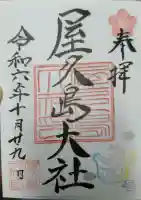 奉拝
屋久島大社
令和六年十月廿九日